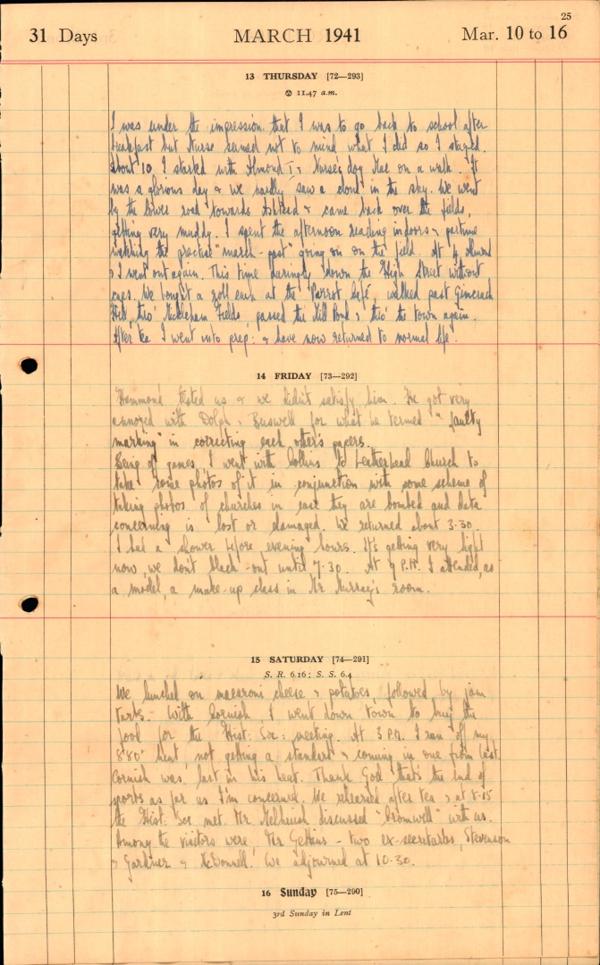 25
31 Days MARCH 1941 Mar. 10 to 16
13 THURSDAY [72—293]
11.47 a.m.
I was under the impression that I was to go back to school after
breakfast but Nurse seemed not to mind what I did so I stayed.
About 10 I started with Almond I & Nurse's dog Mac on a walk. It
was a glorious day & we hardly saw a cloud in the sky. We went
by the lower road towards Ashtead & came back over the fields,
getting very muddy. I spent the afternoon reading indoors & partime
watching the practise "march-past" going on on the field. At 4 Almond
& I went out again. This time daringly down the High Street without
caps. We bought a roll each at the 'Parrot Cafe', walked past Gimcrack
Hill, thro' Mickleham Fields, passed the Mill Pond & 'thro' the town again.
After tea I went into prep: & have now returned to normal life.
14 FRIDAY [73—292]
Hammond tested us & we didn't satisfy him. He got very
annoyed with Dolph & Buswell for what he termed "faulty
marking" in correcting each other's papers.
Being off games I went with Collins to Leatherhead Church to
take some photos of it in conjunction with some scheme of
taking photos of churches in case they are bombed and data
concerning is lost or damaged. We returned about 3.30.
I had a shower before evening hours. It's getting very light
now, we don't black-out until 7.30. At 7 P.M. I attended, as
a model, a make-up class in Mr Murray's room.
15 SATURDAY [74—291]
S. R. 6.16; S. S. 6.4
We lunched on macaroni cheese & potatoes, followed by jam
tarts. With Cornish, I went down town to buy the
food for the Hist. Soc: meeting. At 3 P.M. I ran off my
880' heat not getting a standard & coming in one from last.
Cornish was last in his heat. Thank God that's the end of
sports as far as I'm concerned. We rehearsed after tea & at 8.15
the Hist. Soc met. Mr. discussed "Cromwell" with us.
Among the visitors were Mr - two ex-secretaries, Stevenson
& Gardner & McDonnell. We adjourned at 10.30.
16 Sunday [75—290]
3rd Sunday in Lent